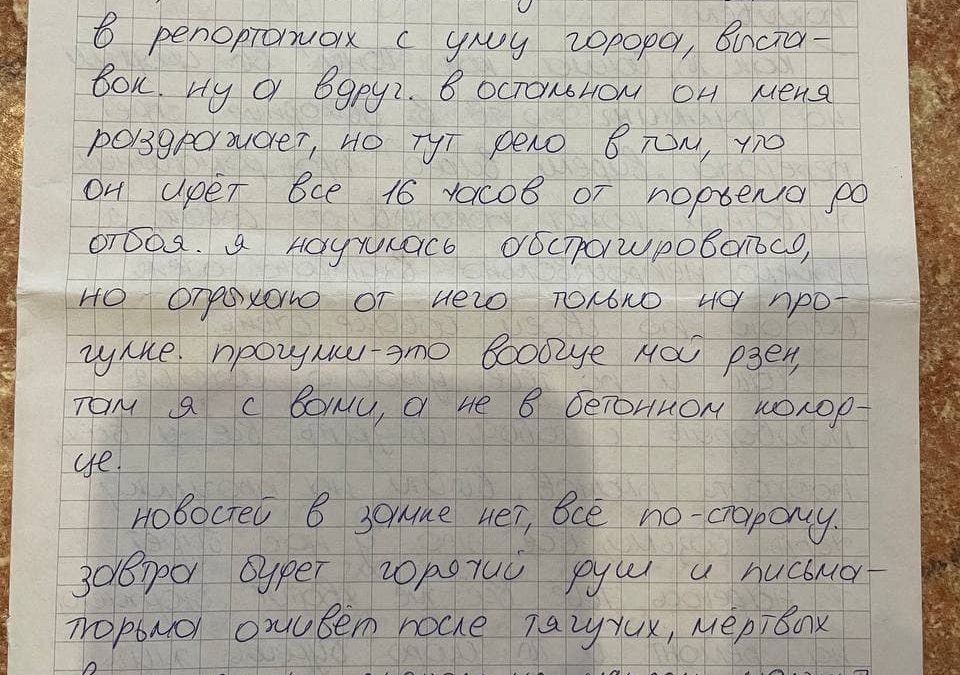 в репортажах с улиц города, выста-
вок. ну а вдруг. в остальном он меня
раздражает, но тут дело в том, что
он идёт все 16 часов от подъема до
отбоя. я научилась абстрагироваться,
но отдыхаю от него только на про-
гулке. прогулки-это вообще мой дзен,
там я с вами, а не в бетонном колод-
це.
новостей в замке нет, всё по-старому.
завтра будет горячий душ и письма-
тюрьма оживёт после тягучих, мёртвых